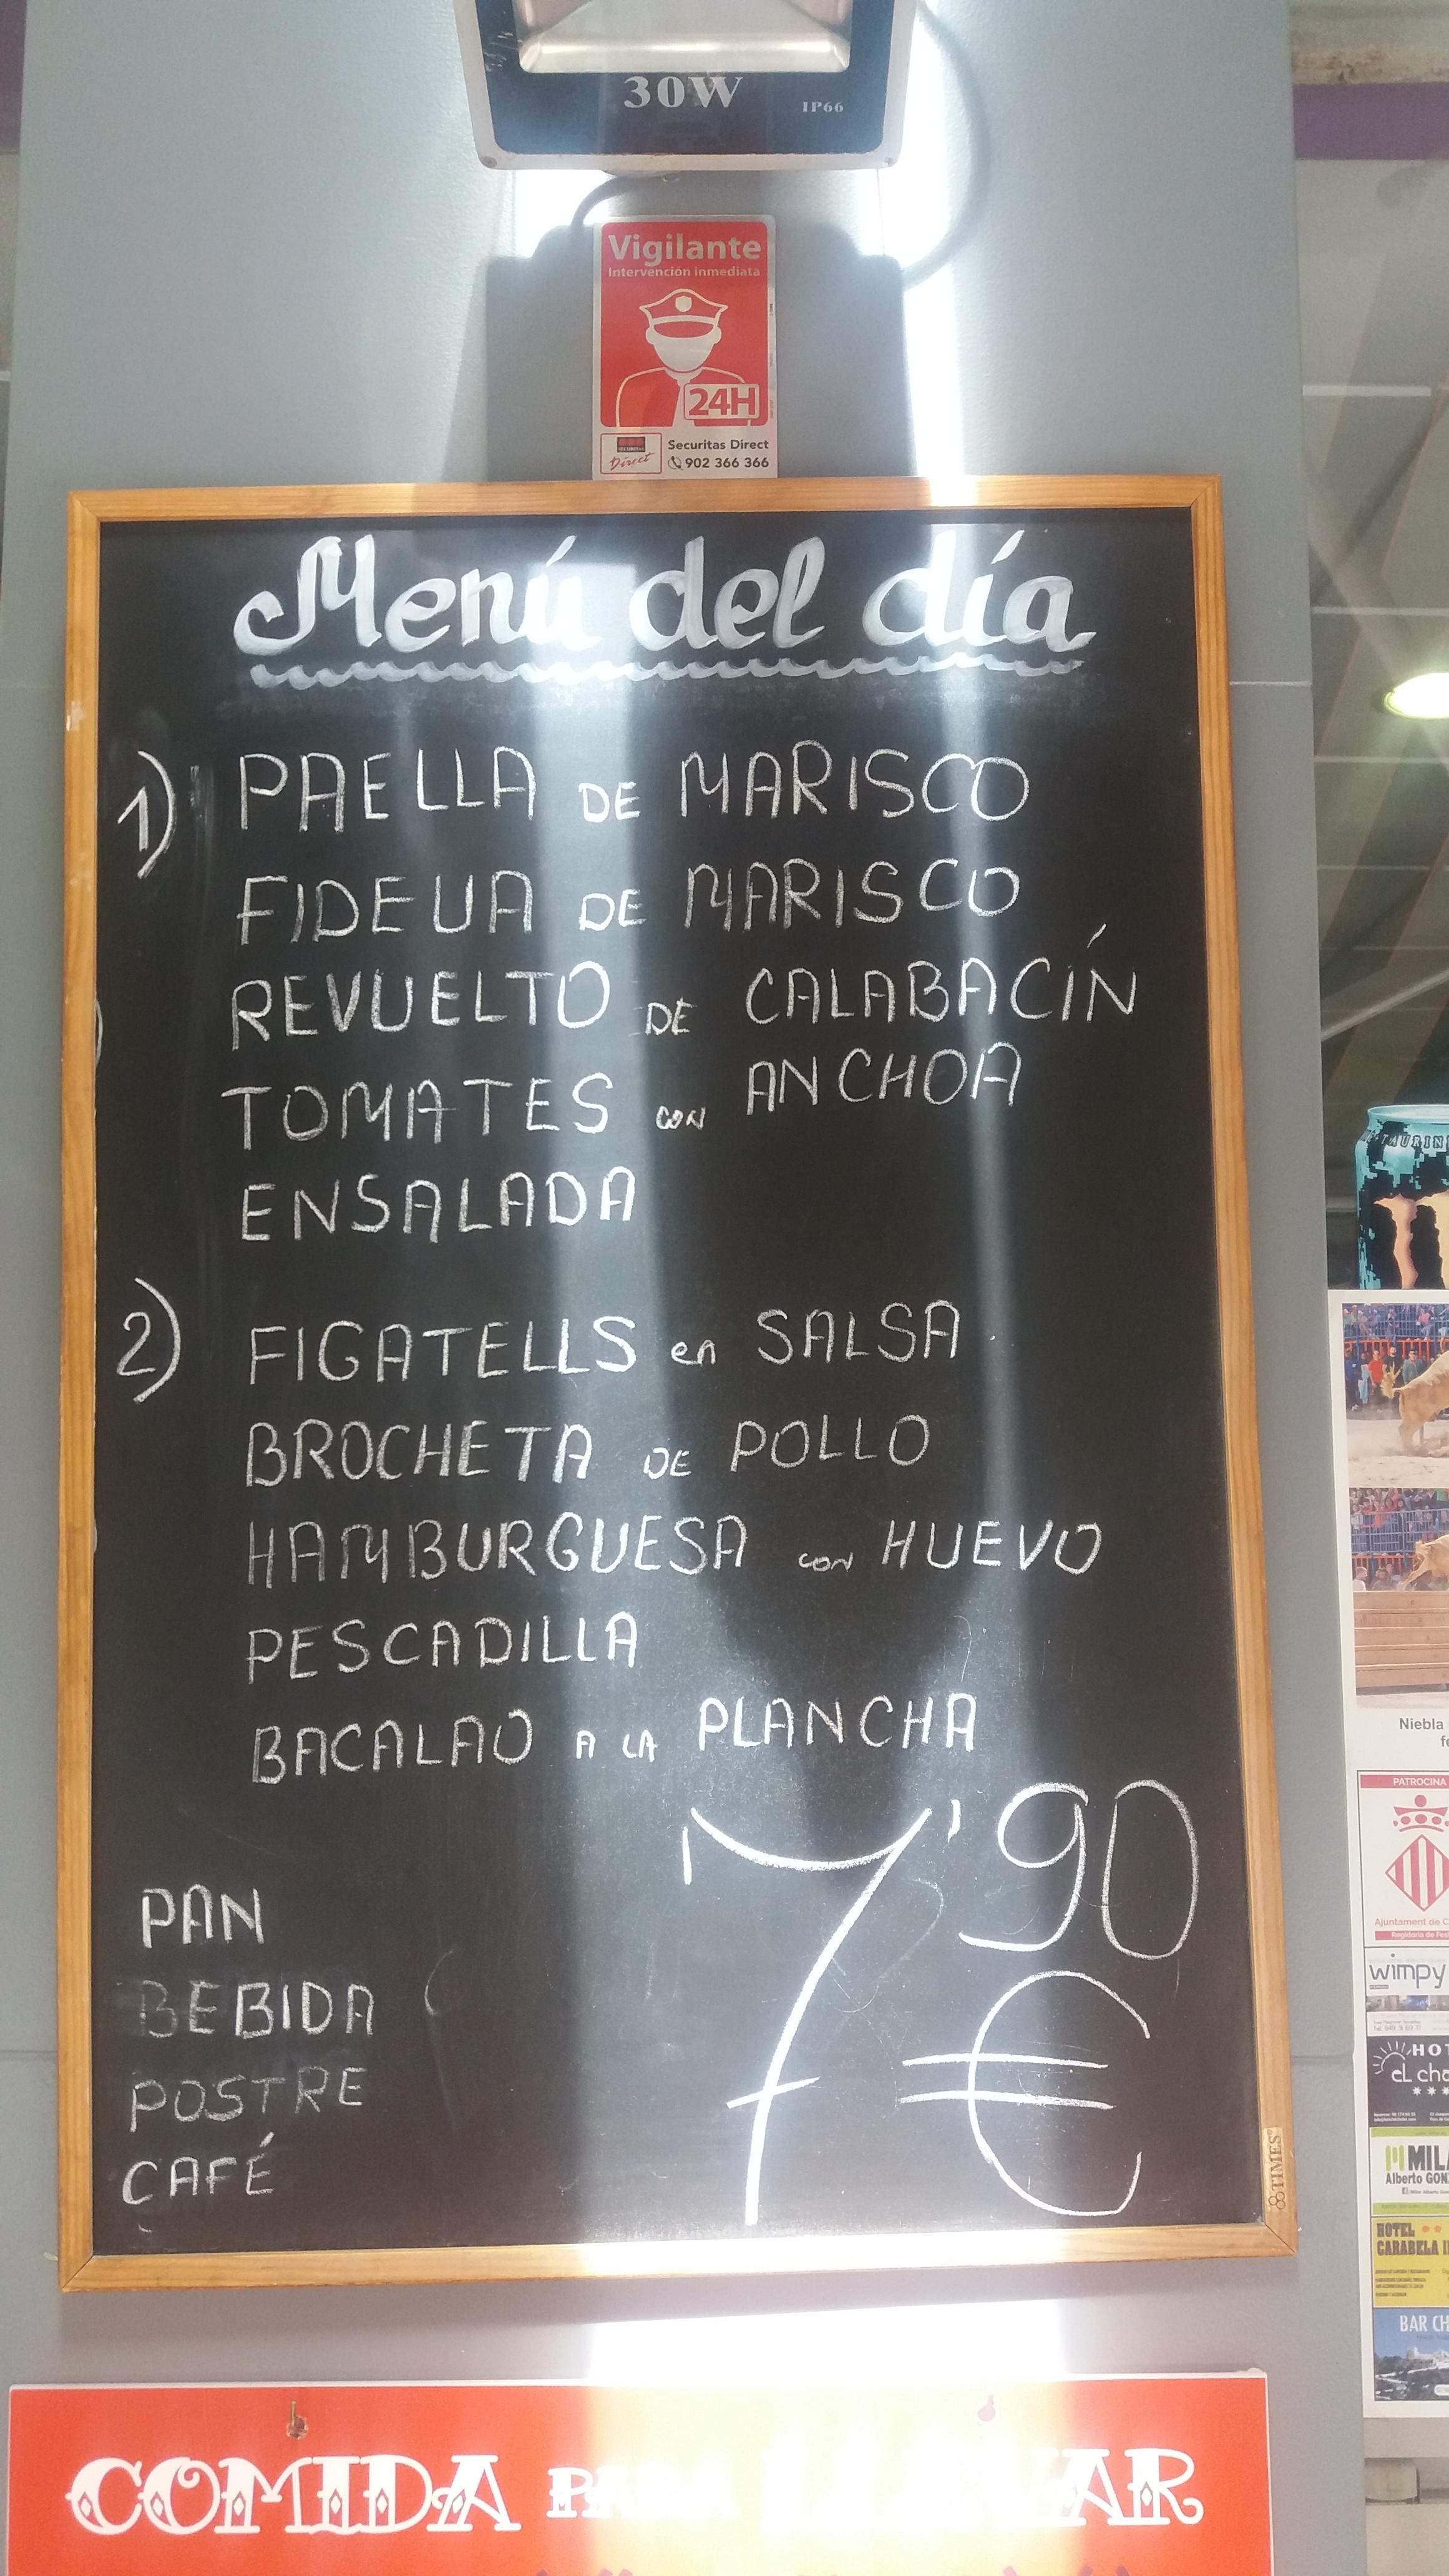 30W IP66
Vigilante
Intervención inmediata
24H
Securitas Direct
902 366 366
Menú del día
1) PAELLA DE MARISCO
FIDEUA DE MARISCO
REVUELTO DE CALABACÍN
TOMATES CON ANCHOA
ENSALADA
2) FIGATELLS en SALSA
BROCHETA DE POLLO
HAMBURGUESA CON HUEVO
PESCADILLA
BACALAO A LA PLANCHA
7'90
€
PAN
BEBIDA
POSTRE
CAFÉ
TIMES
COMIDA PARA LLEVAR
Niebla
PATROCINA
Ajuntament de C
Regidoria de Fes
wimpy
HOT
EL cha
MILA
Alberto GON
HOTEL
CARABELA
BAR CH